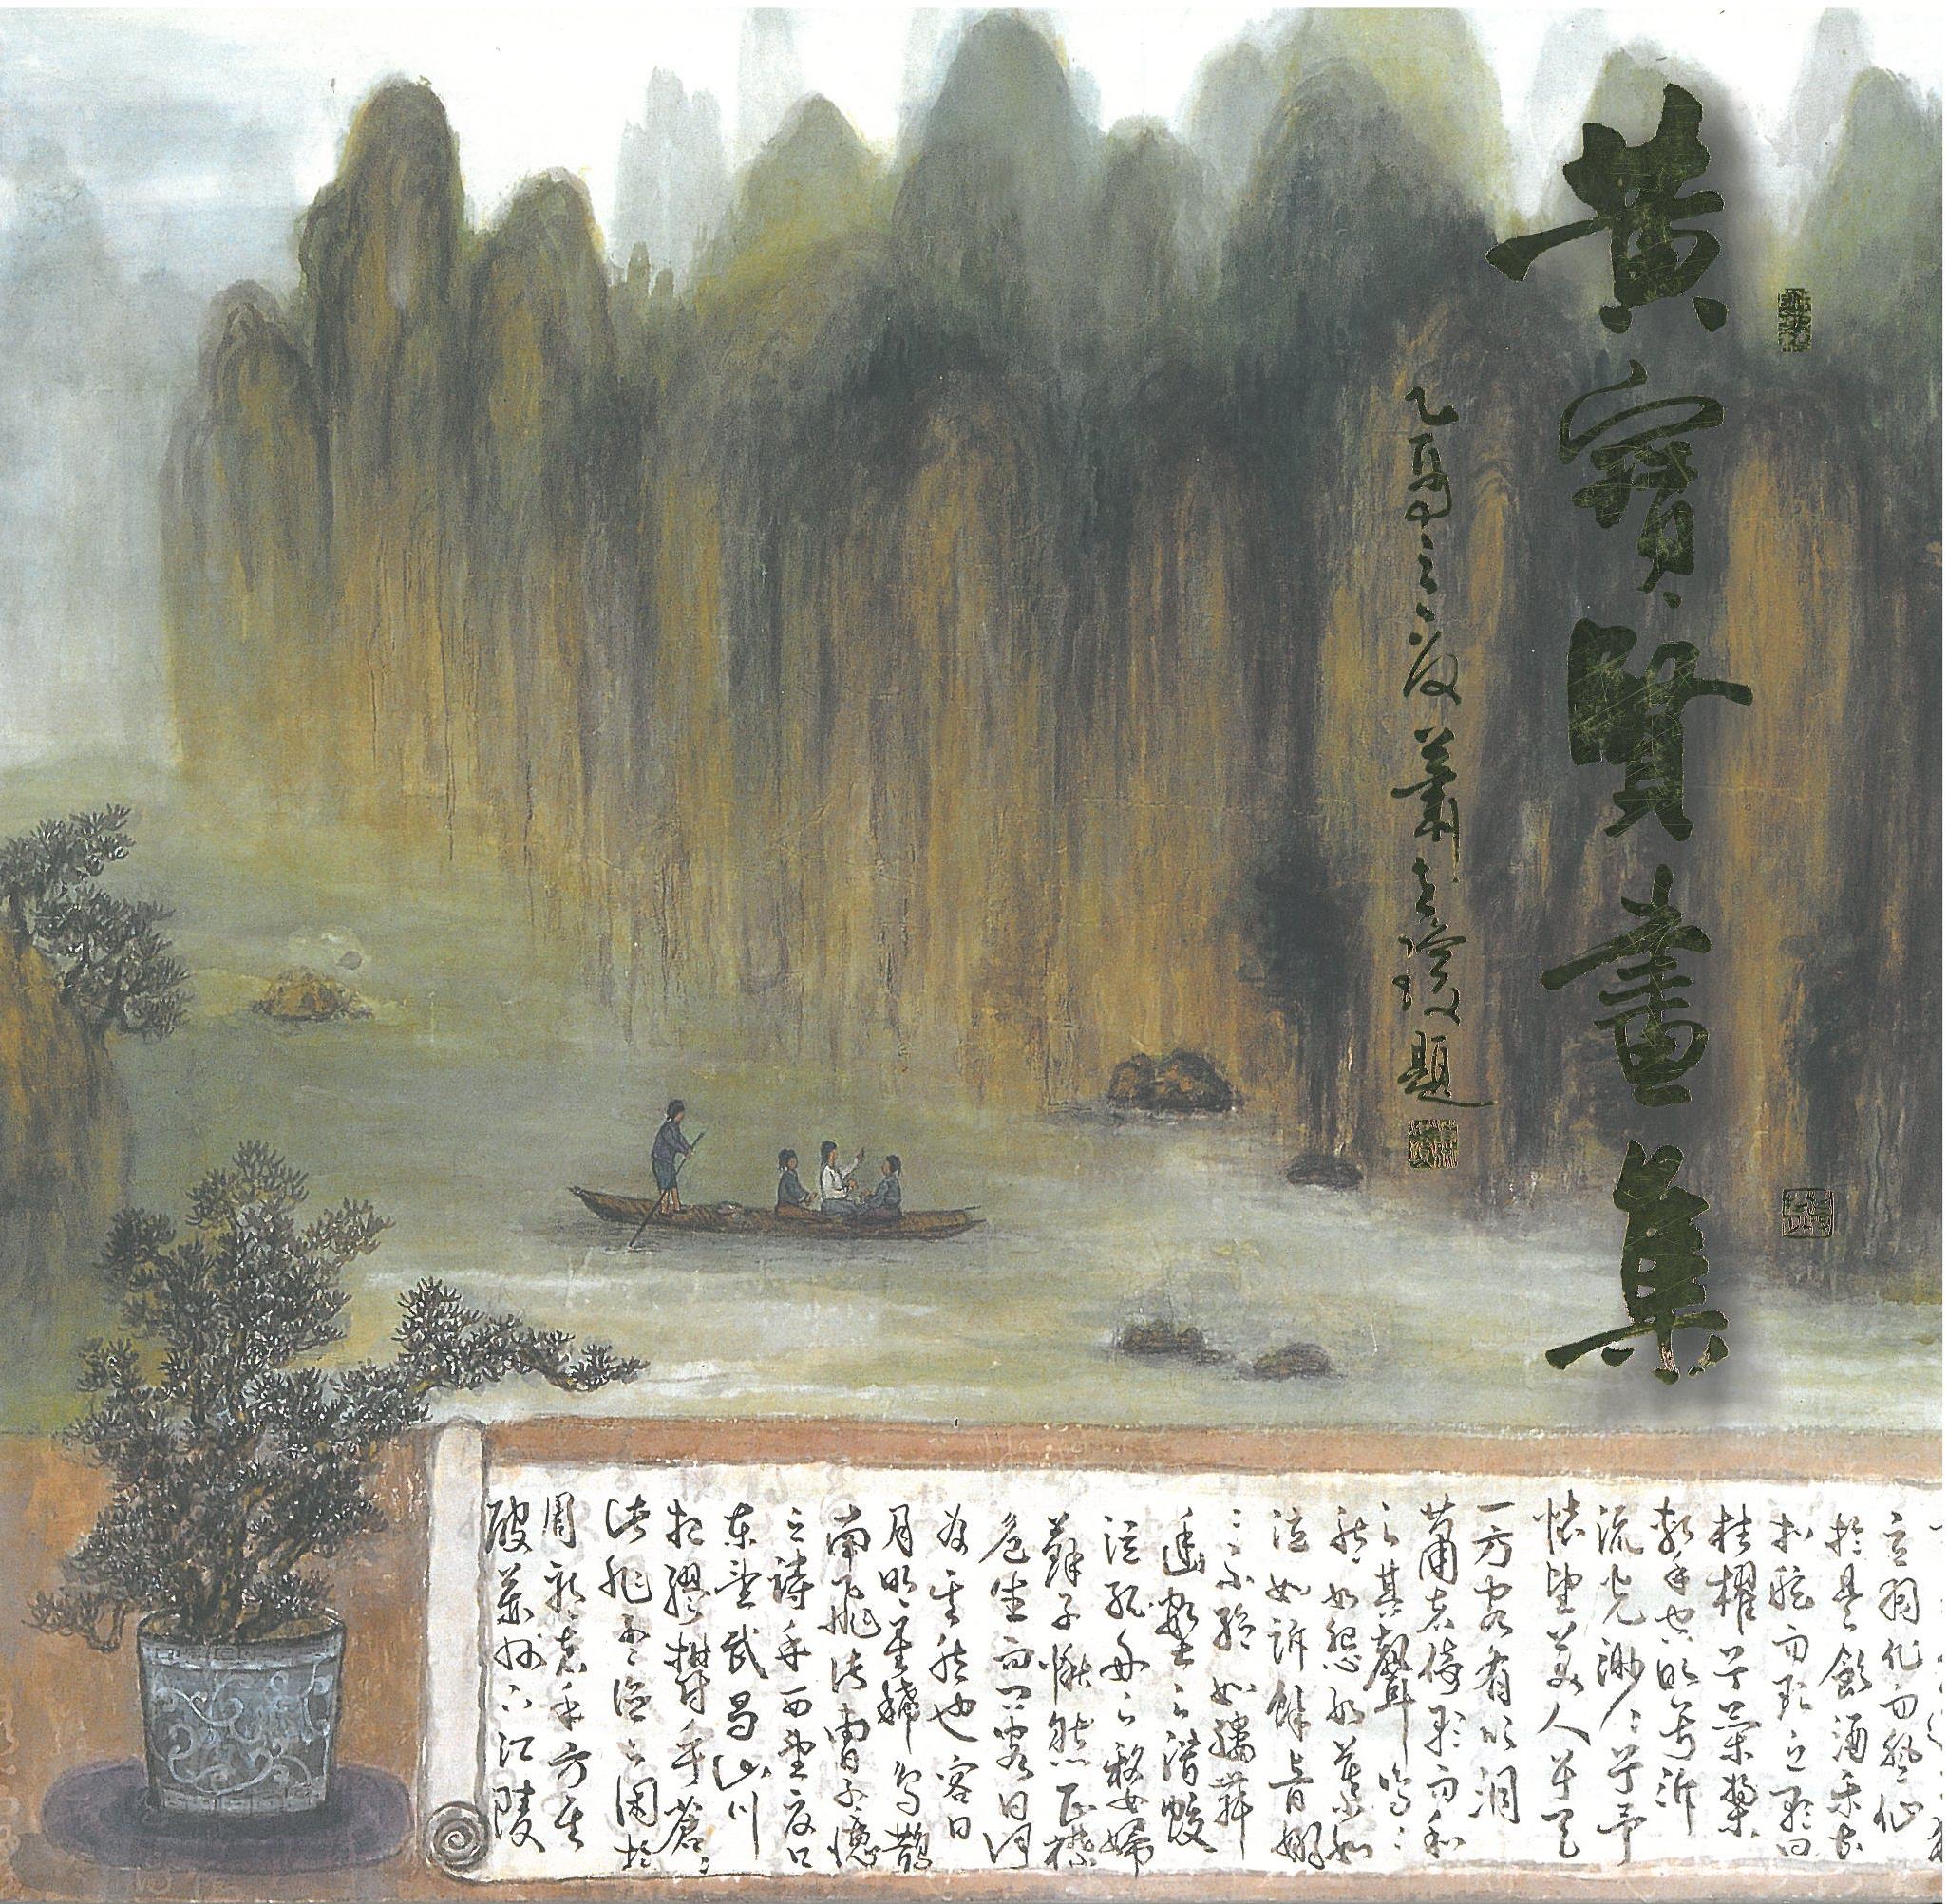 黃寶賢畫集
乙亥 蕭 題
立羽化而登仙
於是飲酒樂甚
扣舷而歌之歌曰
桂櫂兮蘭槳
擊空明兮泝
流光渺渺兮予
懷望美人兮天
一方客有吹洞
簫者倚歌而和
之其聲嗚嗚
然如怨如慕如
泣如訴餘音嫋
嫋不絕如縷舞
幽壑之潛蛟
泣孤舟之嫠婦
蘇子愀然正襟
危坐而問客曰何
為其然也客曰
月明星稀烏鵲
南飛此曹孟德
之詩乎西望夏口
東望武昌山川
相繆鬱乎蒼蒼
此非孟德之困於
周郎者乎方其
破荊州下江陵